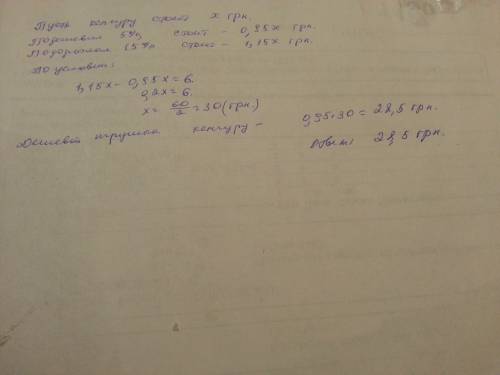 Пусть кенгуру стоит x грн.
Подешевел 5%, стоит - 0,95x грн.
Подорожал 15% стоит - 1,15x грн.
По условию:
1,15x - 0,95x = 6.
0,2x = 6.
x = 60/2 = 30 (грн.)
Дешевая игрушка кенгуру -
0,95·30 = 28,5 грн.
Ответ: 28,5 грн.